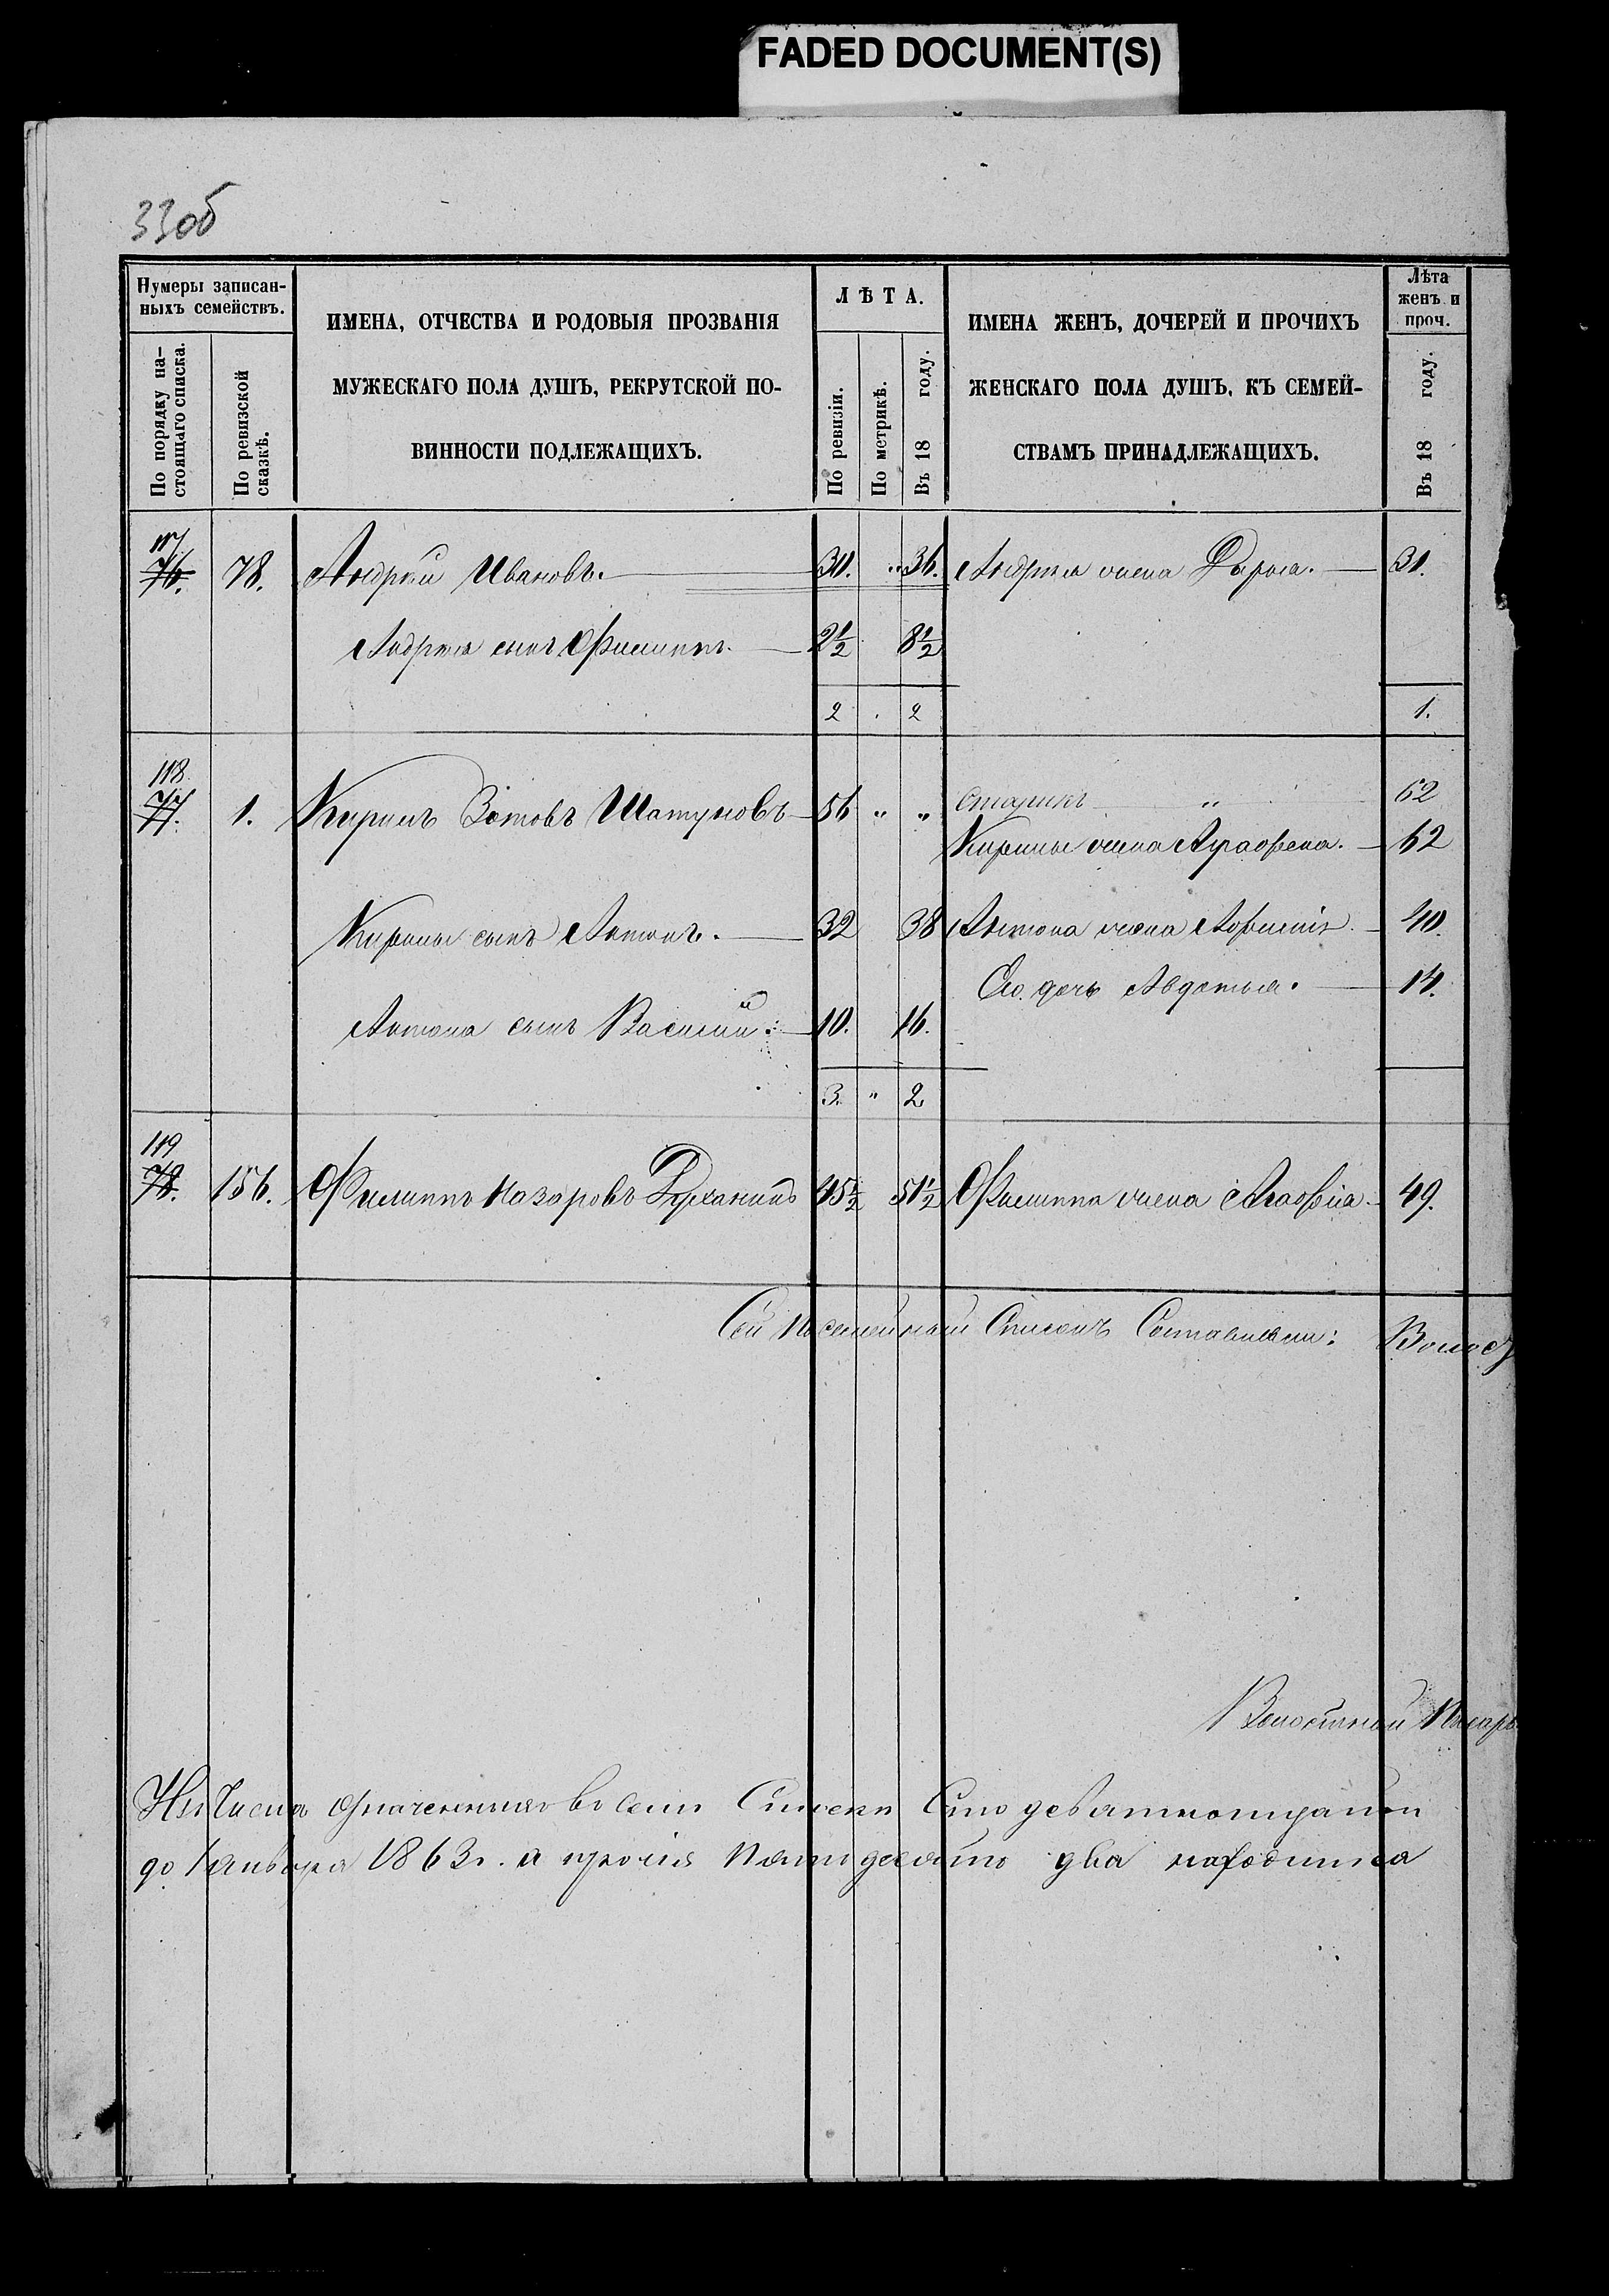 FADED DOCUMENT(S)
33об
Нумеры записан-
ныхъ семействъ.
По порядку на-
стоящаго списка.
По ревизской
сказкѣ.
ИМЕНА, ОТЧЕСТВА И РОДОВЫЯ ПРОЗВАНІЯ
МУЖЕСКАГО ПОЛА ДУШЪ, РЕКРУТСКОЙ ПО-
ВИННОСТИ ПОДЛЕЖАЩИХЪ.
ЛѢТА.
По ревизіи.
По метрикѣ.
Въ 18 году.
ИМЕНА ЖЕНЪ, ДОЧЕРЕЙ И ПРОЧИХЪ
ЖЕНСКАГО ПОЛА ДУШЪ, КЪ СЕМЕЙ-
СТВАМЪ ПРИНАДЛЕЖАЩИХЪ.
Лѣта
женъ и
проч.
Въ 18 году.
117
76. 78. Андрей Ивановъ. 30. " 36. Андрея жена 31.
Андрея сынъ Филиппъ. 2½ 8½
2 . 2 1.
118
77. 1. Кирилъ Зотовъ Шатуновъ 56 " " старикъ " 62
Кирилы жена Аграфена. 62
Кирилы сынъ Антонъ. 32 38 Антона жена 40.
Его дочь Авдотья. 14.
Антона сынъ Василий. 10. 16.
3. " 2
119
78. 156. Филиппъ Назаровъ 45½ 51½ Филиппа жена Агафья 49.
Сей посемейный Списокъ Составилъ: Волос
Волостной Писарь
Изъ Числа означенныхъ въ семъ Списке Сто девятнотцати
до Января 1863г. а прочія Пятьдесятъ два находится